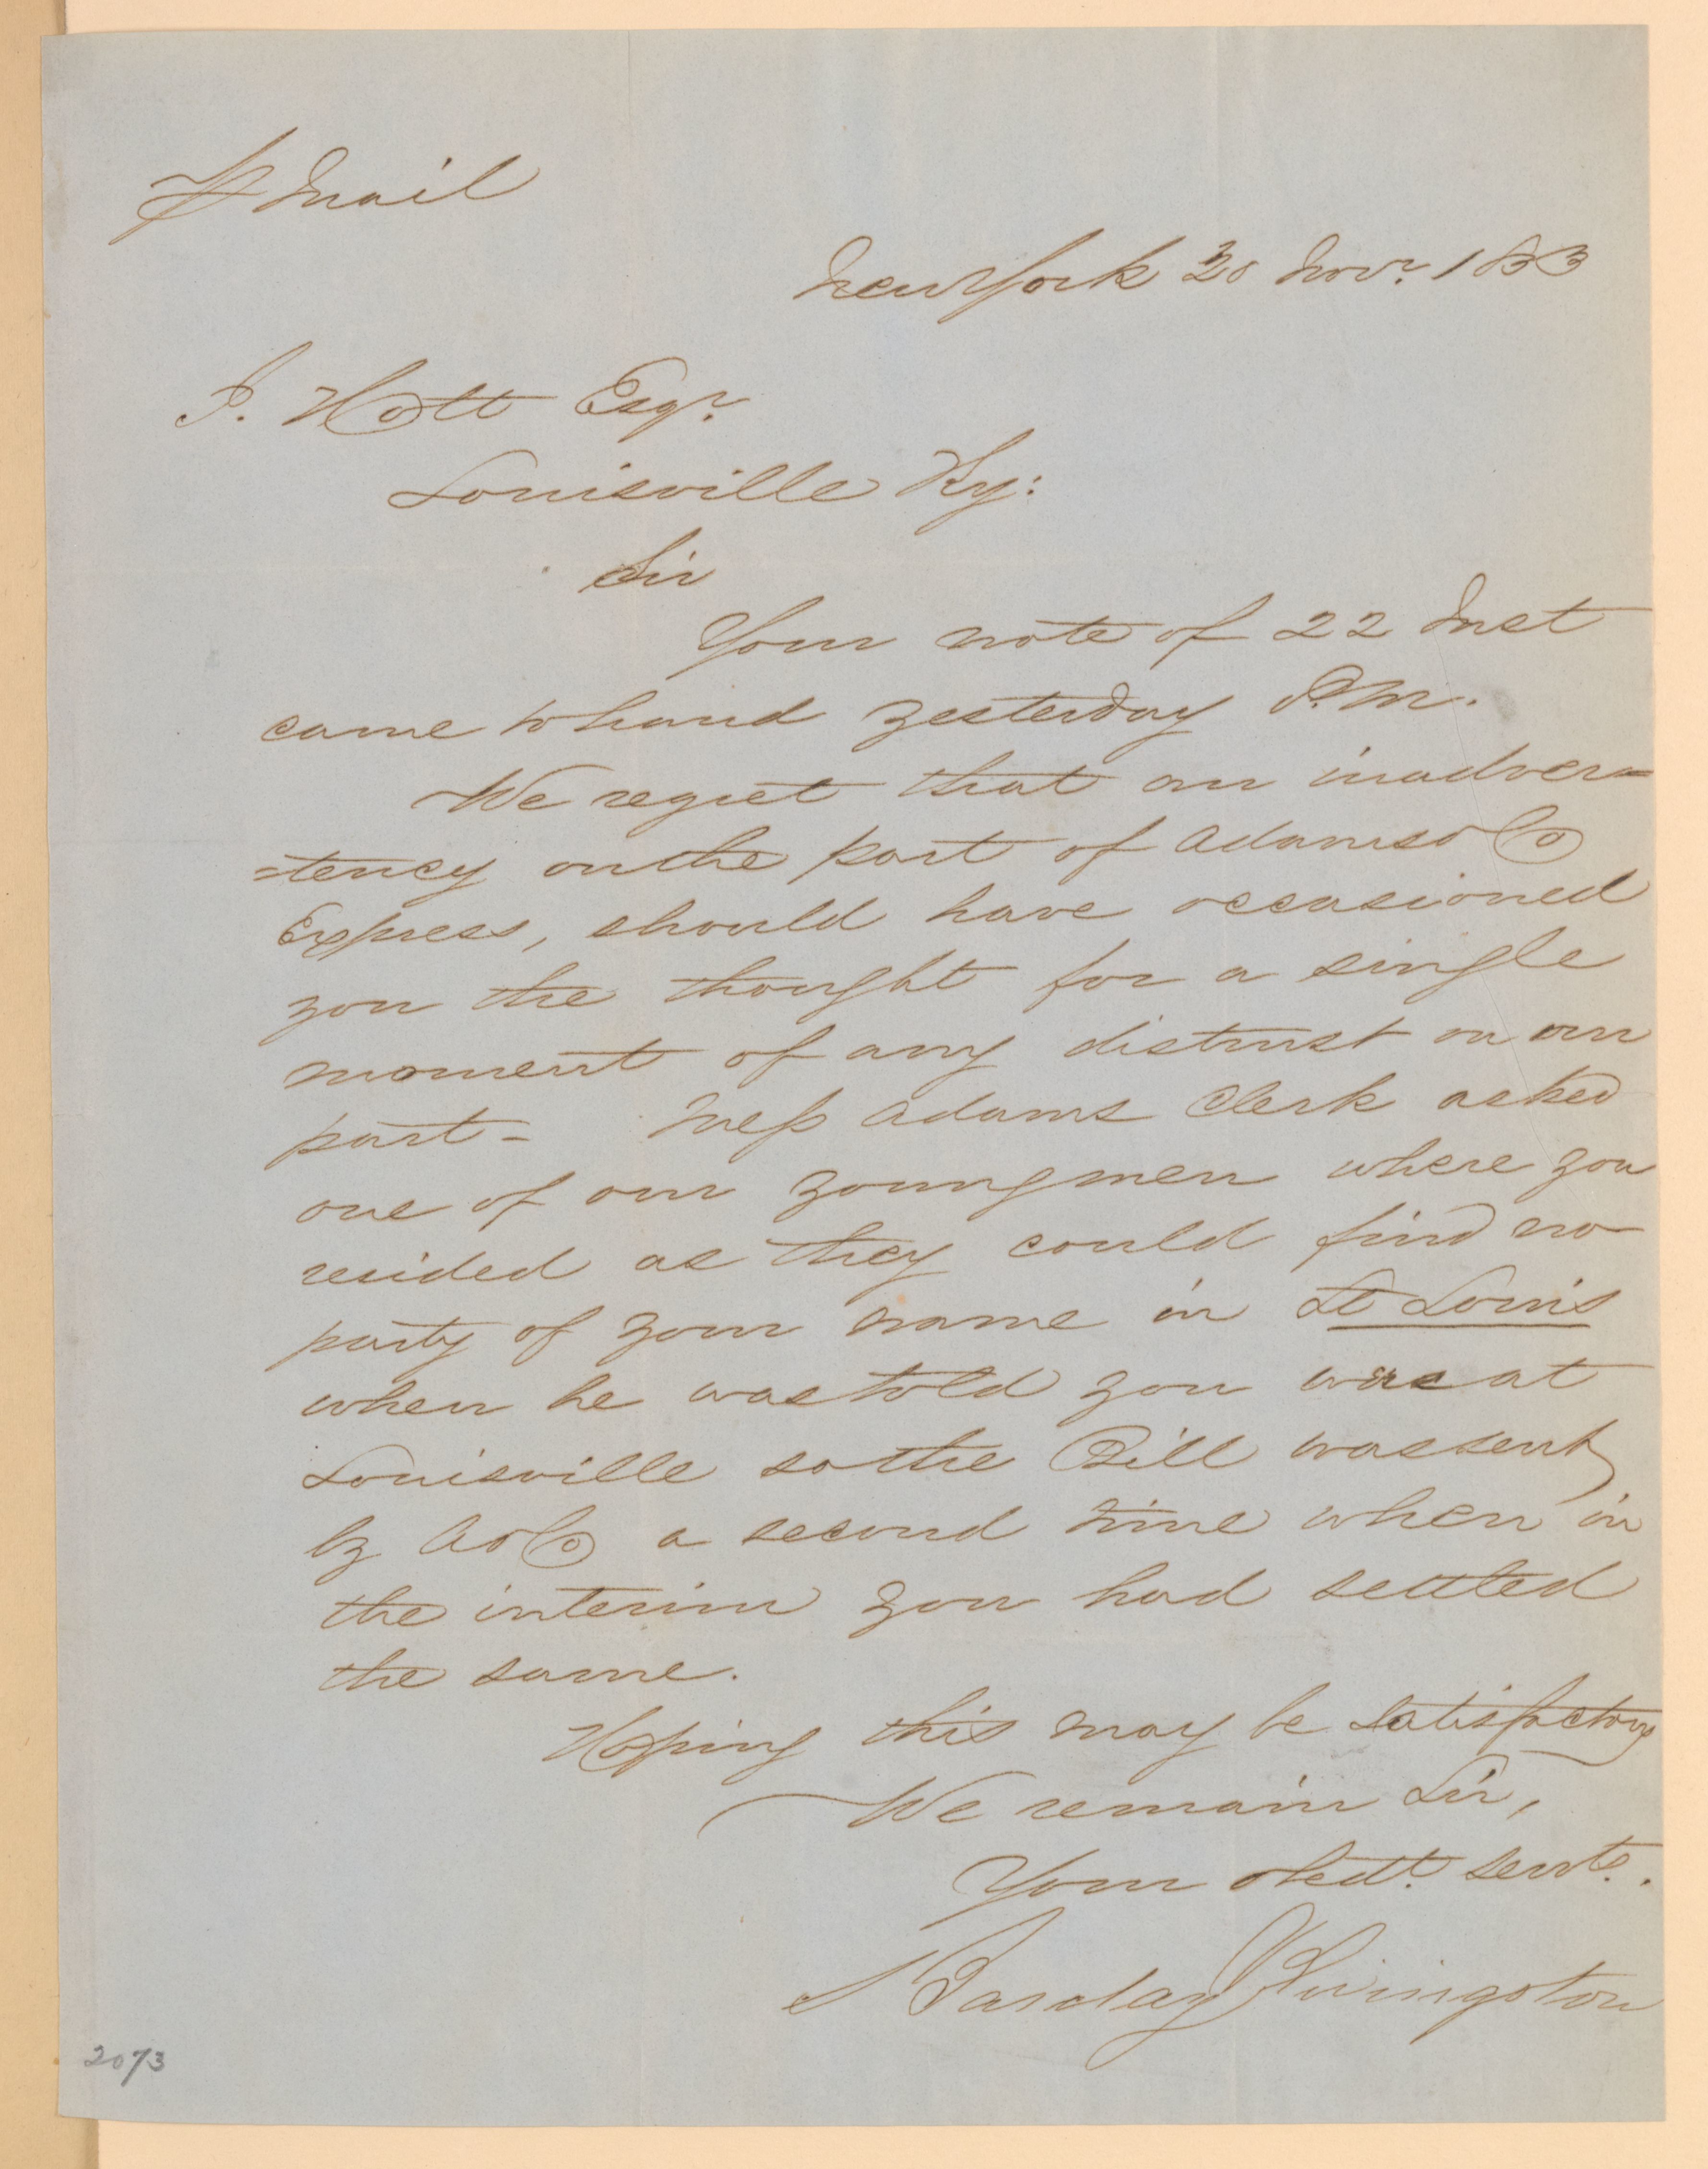 ℔ Mail
New York 28 Novr. 1853
J. Holt Esqr.
Louisville Ky:
Sir
Your note of 22 Inst
came to hand yesterday P.M.
We regret that an inadver=
=tency on the part of Adams & Co
Express, should have occasioned
you the thought for a single
moment of any distrust on our
part - Mess Adams Clerk asked
one of our young men where you
resided as they could find no
party of your name in St Louis
when he was told you was at
Louisville so the Bill was sent
by A & Co a second time when in
the interim you had settled
the same.
Hoping this may be satisfactory
We remain Sir,
Your obedt. servts.
Barclay Livingston
2073